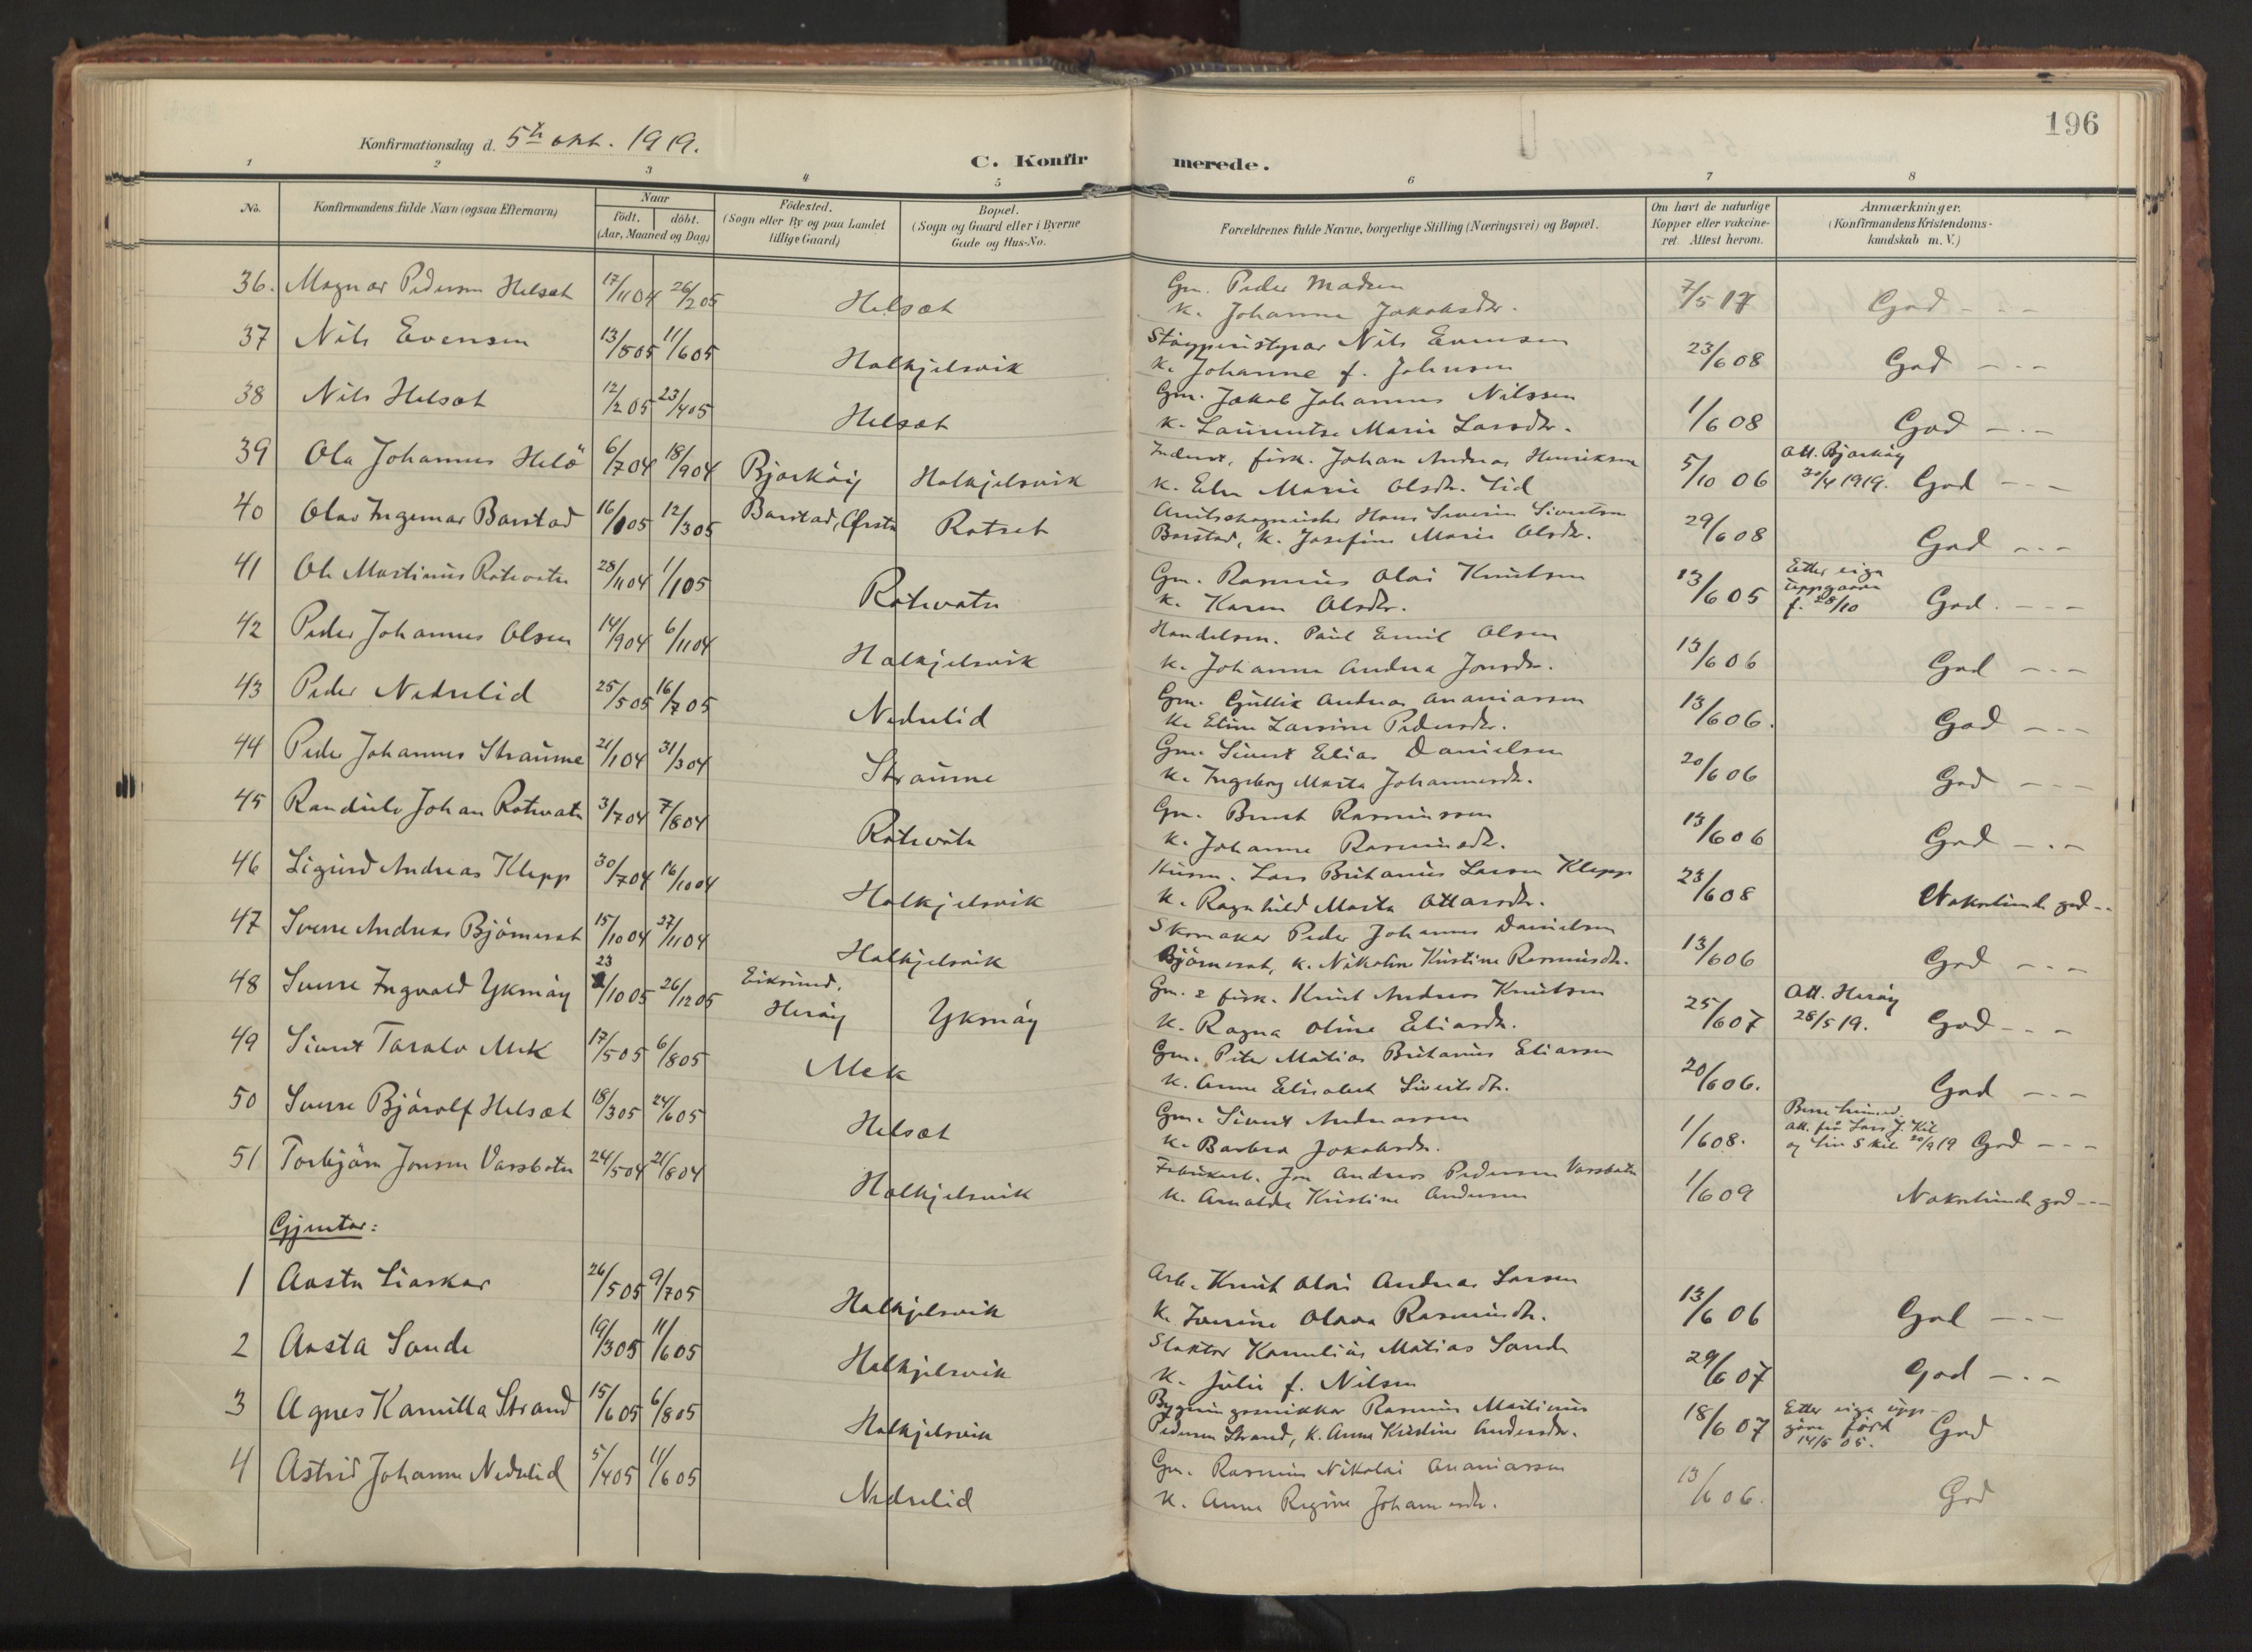 196
Konfirmationsdag d. 5te okt. 1919.
C. Konfirmerede.
1 2 3 4 5 6 7 8
No.
Konfirmandens fulde Navn (ogsaa Efternavn)
Naar
født. døbt.
(Aar, Maaned og Dag)
Födested.
(Sogn eller By og paa Landet
tillige Gaard)
Bopæl.
(Sogn og Gaard eller i Byerne
Gade og Hus-No.
Forældrenes fulde Navne, borgerlige Stilling (Næringsvei) og Bopæl.
Om havt de naturlige
Kopper eller vakcine-
ret. Attest herom.
Anmærkninger.
(Konfirmandens Kristendoms-
kundskab m. V.)
36. Magnar Pedersen Helsæt 17/11 04 26/2 05 Helsæt Gm. Peder Madsen
k. Johanna Jakobsdr. 7/5 17 God - - -
37 Nils Evensen 13/5 05 11/6 05 Halkjelsvik Nils Evensen
k. Johanne f. Johnsen 23/6 08 God - - -
38 Nils Helsæt 12/2 05 23/4 05 Helsæt Gm. Jakob Johannes Nilssen
k. Laurentse Marie Larsdr. 1/6 08 God - - -
39 Ola Johannes Helö 6/7 04 18/9 04 Bjarköy Halkjelsvik Inderst, fisk. Johan Andreas Henriksen
k. Elen Marie Olsdr. Lid 5/10 06 Att. Bjarköy
30/4 1919. God - - -
40 Olav Ingemar Barstad 16/1 05 12/3 05 Barstad, Ørsta Rotset Hans Severin Sivertsen
Barstad, k. Josefine Marie Olsdr. 29/6 08 God - - -
41 Ole Martinus Rotevatn 28/11 04 1/1 05 Rotevatn Gm. Rasmus Olai Knutsen
k. Karen Olsdr. 13/6 05 Etter eiga
uppgaave
f. 28/10 God. - - -
42 Peder Johannes Olsen 14/9 04 6/11 04 Halkjelsvik Handelsm. Paul Emil Olsen
k. Johanna Andrea Jonsdr. 13/6 06 God - - -
43 Peder Nedrelid 25/5 05 16/7 05 Nedrelid Gm. Gullik Andreas Ananiassen
k. Eline Larsine Pedersdr. 13/6 06. God - - -
44 Peder Johannes Straume 21/1 04 31/3 04 Straume Gm. Sivert Elias Danielsen
k. Ingeborg Marta Johannesdr. 20/6 06 God - - -
45 Randulv Johan Rotevatn 3/7 04 7/8 04 Rotevatn Gm. Bernt Rasmussen
k. Johanne Rasmusdr. 13/6 06 God - - -
46 Sigurd Andreas Klepp 30/7 04 16/10 04 Halkjelsvik Husm. Lars Britanus Larsen Klepp
k. Ragnhild Marta Ottarsdr. 23/6 08 Nokolunde god - -
47 Sverre Andreas Björneset 15/10 04 27/11 04 Halkjelsvik Skomakar Peder Johannes Danielsen
Björneset, k. Nikoline Kristine Rasmusdr. 13/6 06 God - - -
48 Sverre Ingvald Yksnöy 23/10 05 26/12 05 Eiksund,
Heröy Yksnöy Gm. & fisk. Knut Andreas Knutsen
k. Ragna Oline Eliasdr. 25/6 07 Att. Heröy
28/5 19. God - - -
49 Sivert Taralv Mek 17/5 05 6/8 05 Mek Gm. Peter Matias Britanus Eliassen
k. Anne Elisabet Sivertsdr. 20/6 06. God - - -
50 Sverre Björolf Helsæt 18/3 05 24/6 05 Helsæt Gm. Sivert Andreassen
k. Barbra Jakobsdr. 1/6 08.
att. frå Lars J. Kil
20/9 19 God - - -
51 Torbjörn Jonsen Varsbotn 24/5 04 21/8 04 Halkjelsvik Fabrikarb. Jon Andreas Pedersen Varsbotn
k. Arnalde Kristine Andersen 1/6 09 Nokolunde god - - -
Gjentor:
1 Aasta Liaskar 26/5 05 9/7 05 Halkjelsvik Arb. Knut Olai Andreas Larsen
k. Iverine Olava Rasmusdr. 13/6 06 God - - -
2 Aasta Sande 19/3 05 11/6 05 Halkjelsvik Slaktar Kornelius Matias Sande
k. Julie f. Nilsen 29/6 07 God - - -
3 Agnes Kamilla Strand 15/6 05 6/8 05 Halkjelsvik Bygningssnikkar Rasmus Martinus
Pedersen Strand, k. Anne Kristine Andersdr. 18/6 07 Etter eiga upp-
gåve født
14/5 05. God
4 Astrid Johanne Nedrelid 5/4 05 11/6 05 Nedrelid Gm. Rasmus Nikolai Ananiassen
k. Anna Regine Johannesdr. 13/6 06. God